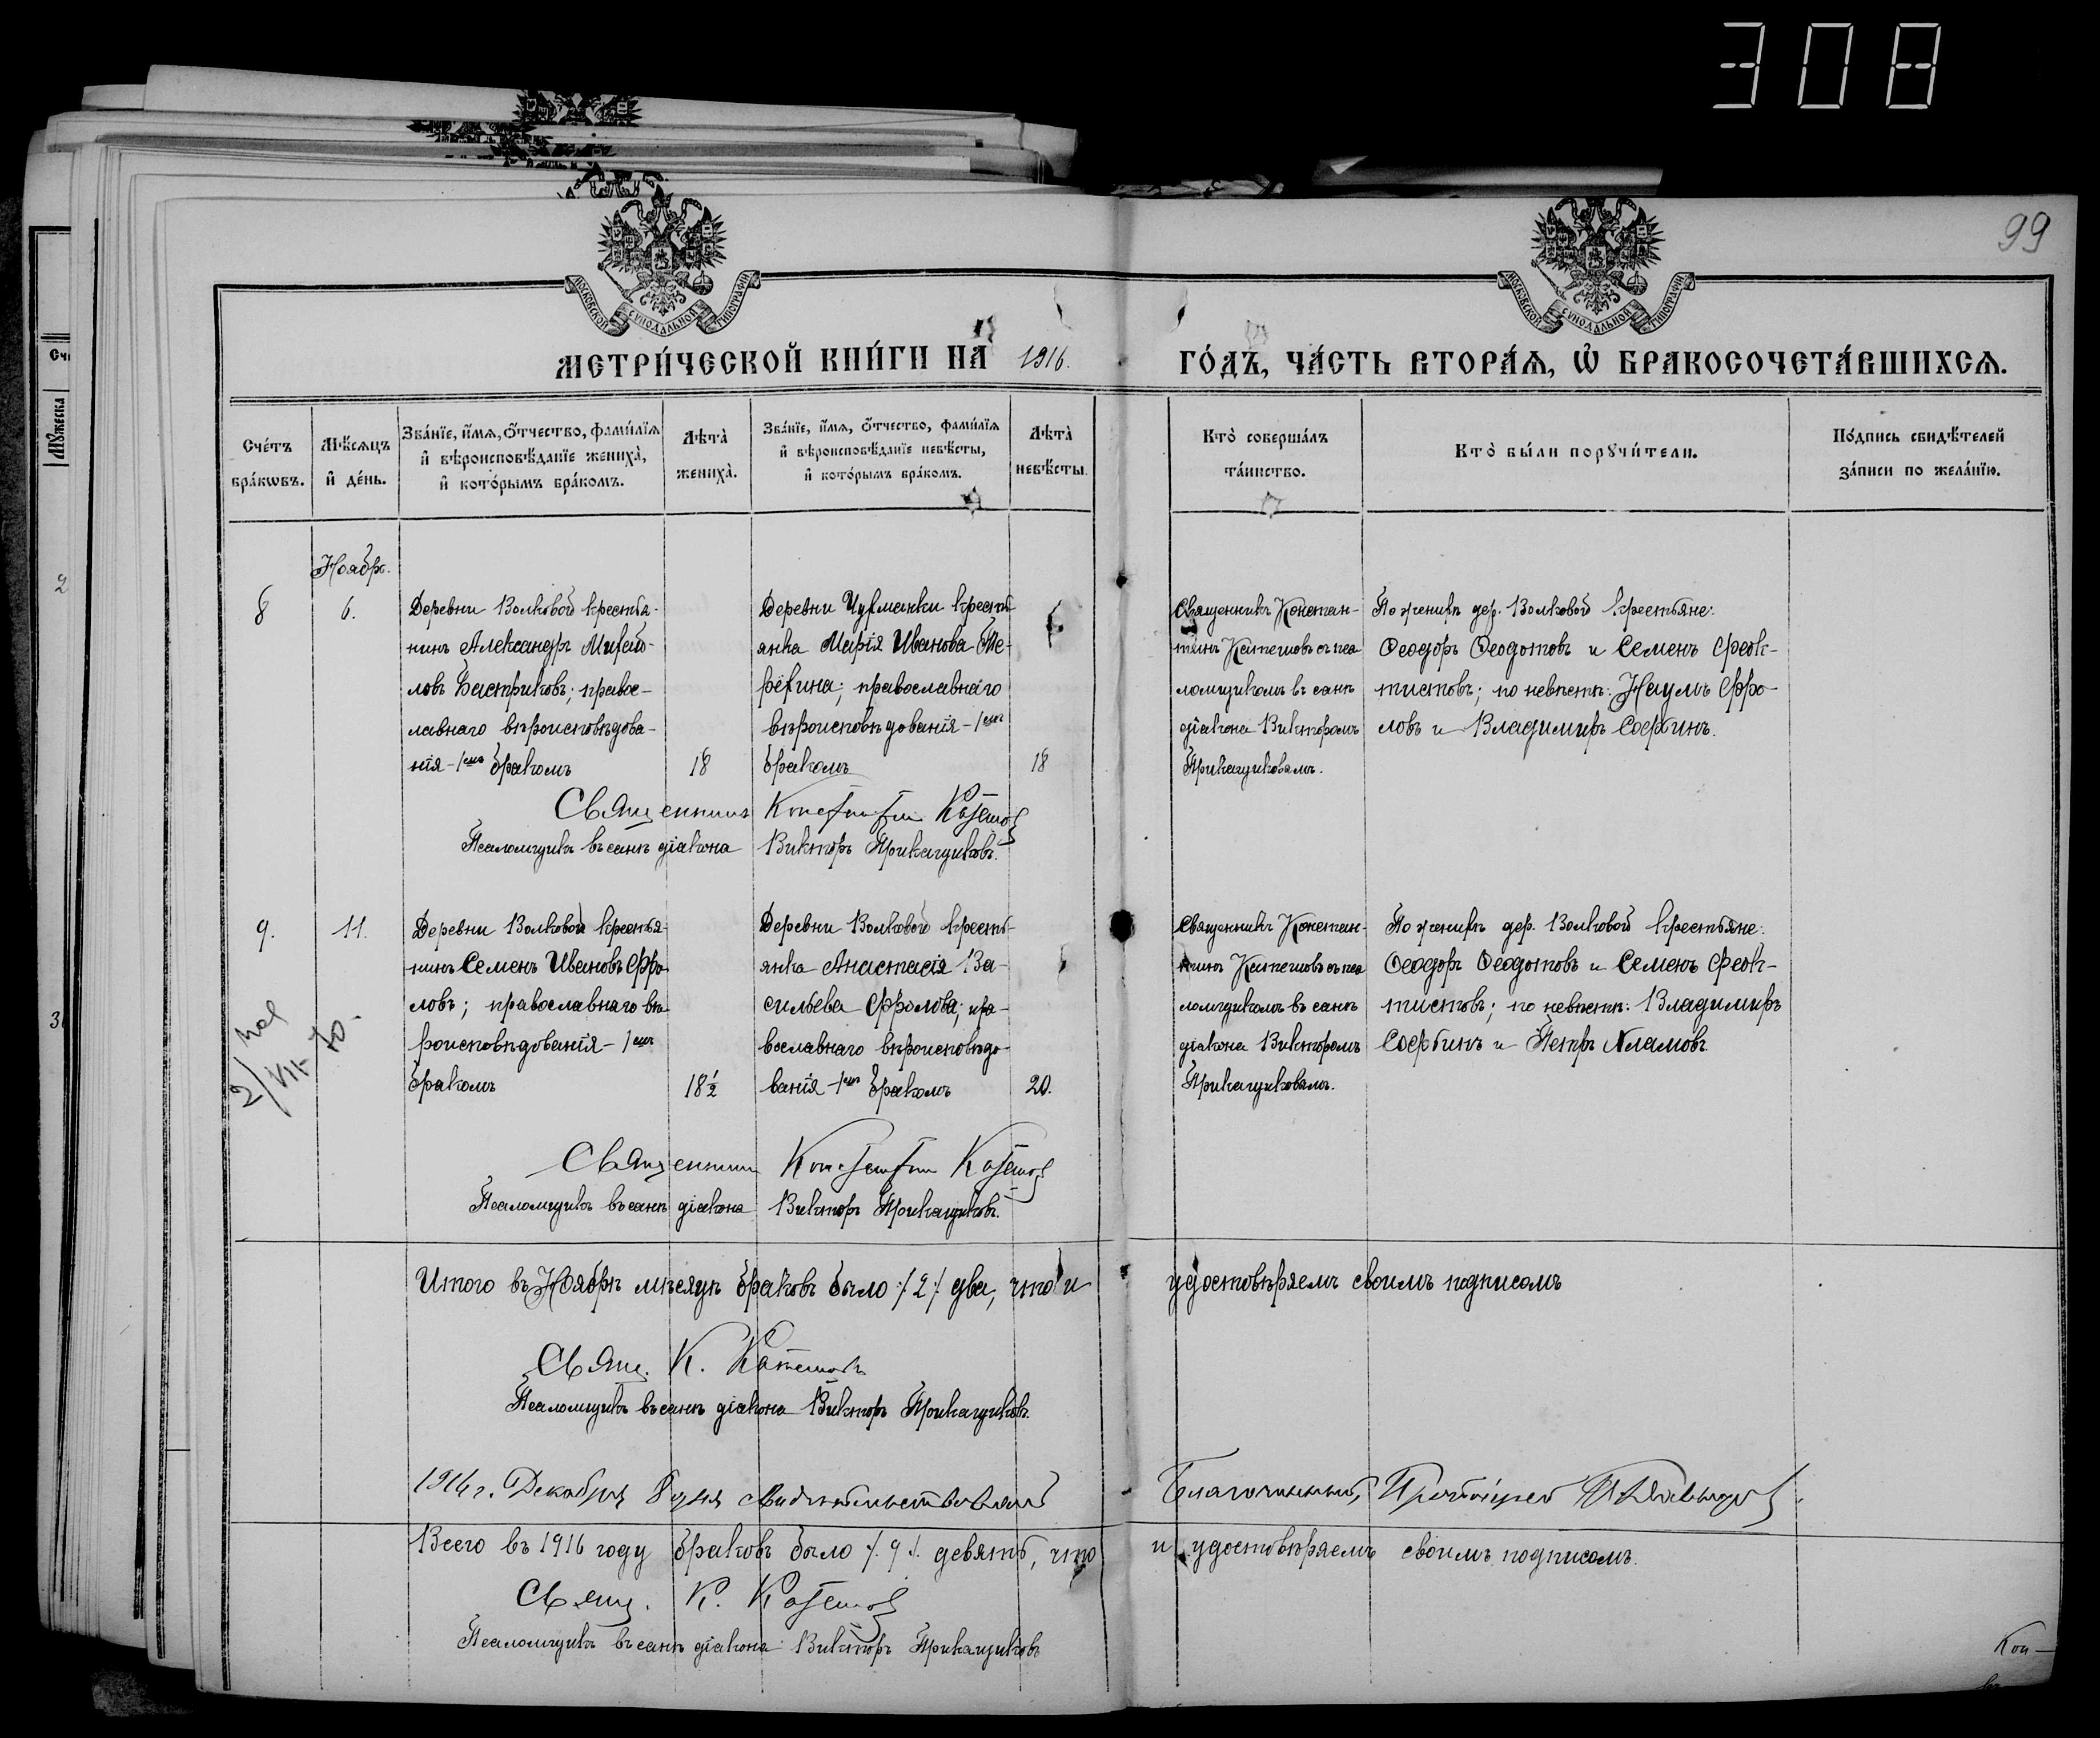 308
99
МОСКОВСКОЙ СѴНОДАЛЬНОЙ ТИПОГРАФІИ
МОСКОВСКОЙ СѴНОДАЛЬНОЙ ТИПОГРАФІИ
МЕТРИ́ЧЕСКОЙ КНИ́ГИ НА 1916. ГО́ДЪ, ЧА́СТЬ ВТОРА́Ѧ, Ѿ БРАКОСОЧЕТА́ВШИХСѦ.
Сче́тъ бра́кѡвъ.
Мѣ́сѧцъ и҆ де́нь.
Зва́нїе, и҆́мѧ, ѻ҆́тчество, фами́лїѧ и҆ вѣроисповѣ́данїе жениха̀, и҆ кото́рымъ бра́комъ.
Лѣта̀ жениха̀.
Зва́нїе, и҆́мѧ, ѻ҆́тчество, фами́лїѧ и҆ вѣроисповѣ́данїе невѣ́сты, и҆ кото́рымъ бра́комъ.
Лѣта̀ невѣ́сты.
Кто̀ соверша́лъ та́инство.
Кто̀ бы́ли порꙋчи́тели.
По́дпись свидѣ́телей за́писи по жела́нїю.
Ноябрь.
8
6.
Деревни Волковой крестья-
нинъ Александръ Михай-
ловъ Бастриковъ; правос-
лавнаго вѣроисповѣдова-
нія - 1ымъ бракомъ
18
Деревни Чурманки кресть-
янка Марія Иванова
православнаго
вѣроисповѣдованія - 1ымъ
бракомъ
18
Священникъ Констан-
тинъ Катешовъ съ пса-
ломщикомъ въ санѣ
діакона Викторомъ
Прикащиковымъ.
По женихѣ дер. Волковой крестьяне:
Ѳеодоръ Ѳеодотовъ и Семенъ Ѳеок-
тистовъ; по невѣстѣ: Наумъ Фро-
ловъ и Владимиръ
Священникъ Константин Катешов
Псаломщикъ въ санѣ діакона Викторъ Прикащиковъ.
9.
11.
Деревни Волковой крестья-
нинъ Семенъ Ивановъ Фро-
ловъ; православнаго вѣ-
роисповѣдованія - 1ымъ
бракомъ
18½
Деревни Волковой кресть-
янка Анастасія Ва-
сильева Фролова; пра-
вославнаго вѣроисповѣдо-
ванія - 1ымъ бракомъ
20.
Священникъ Констан-
тинъ Катешовъ съ пса-
ломщикомъ въ санѣ
діакона Викторомъ
Прикащиковымъ.
По женихѣ дер. Волковой крестьяне:
Ѳеодоръ Ѳеодотовъ и Семенъ Феок-
тистовъ; по невѣстѣ: Владимиръ
и Петръ
Священник Константин Катешов
Псаломщикъ въ санѣ діакона Викторъ Прикащиковъ.
Итого въ Ноябрѣ мѣсяцѣ браковъ было /2/ два, что и удостовѣряемъ своимъ подписомъ
Свящ. К. Катешовъ
Псаломщикъ въ санѣ діакона Викторъ Прикащиковъ.
1916 г. Декабря 8 дня свидѣтельствовалъ Благочинный, Протоіерей
Всего въ 1916 году браковъ было /9/ девять, что и удостовѣряемъ своимъ подписомъ.
Свящ. К. Катешов
Псаломщикъ въ санѣ діакона Викторъ Прикащиковъ